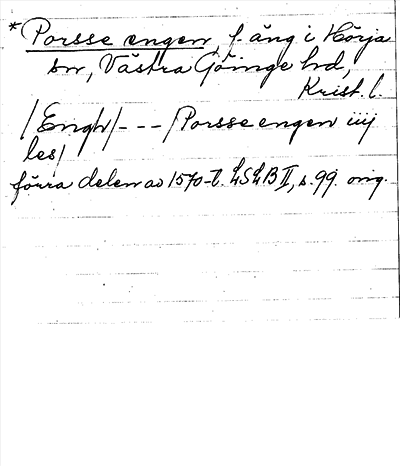 * Porsse engen, f. äng i Hörja
sn, Västra Göinge hd,
Krist. l.
/Engh/ - - - /Porsse engen iiij
les/
förra delen av 1570-t. LSLB II, s. 99. orig.